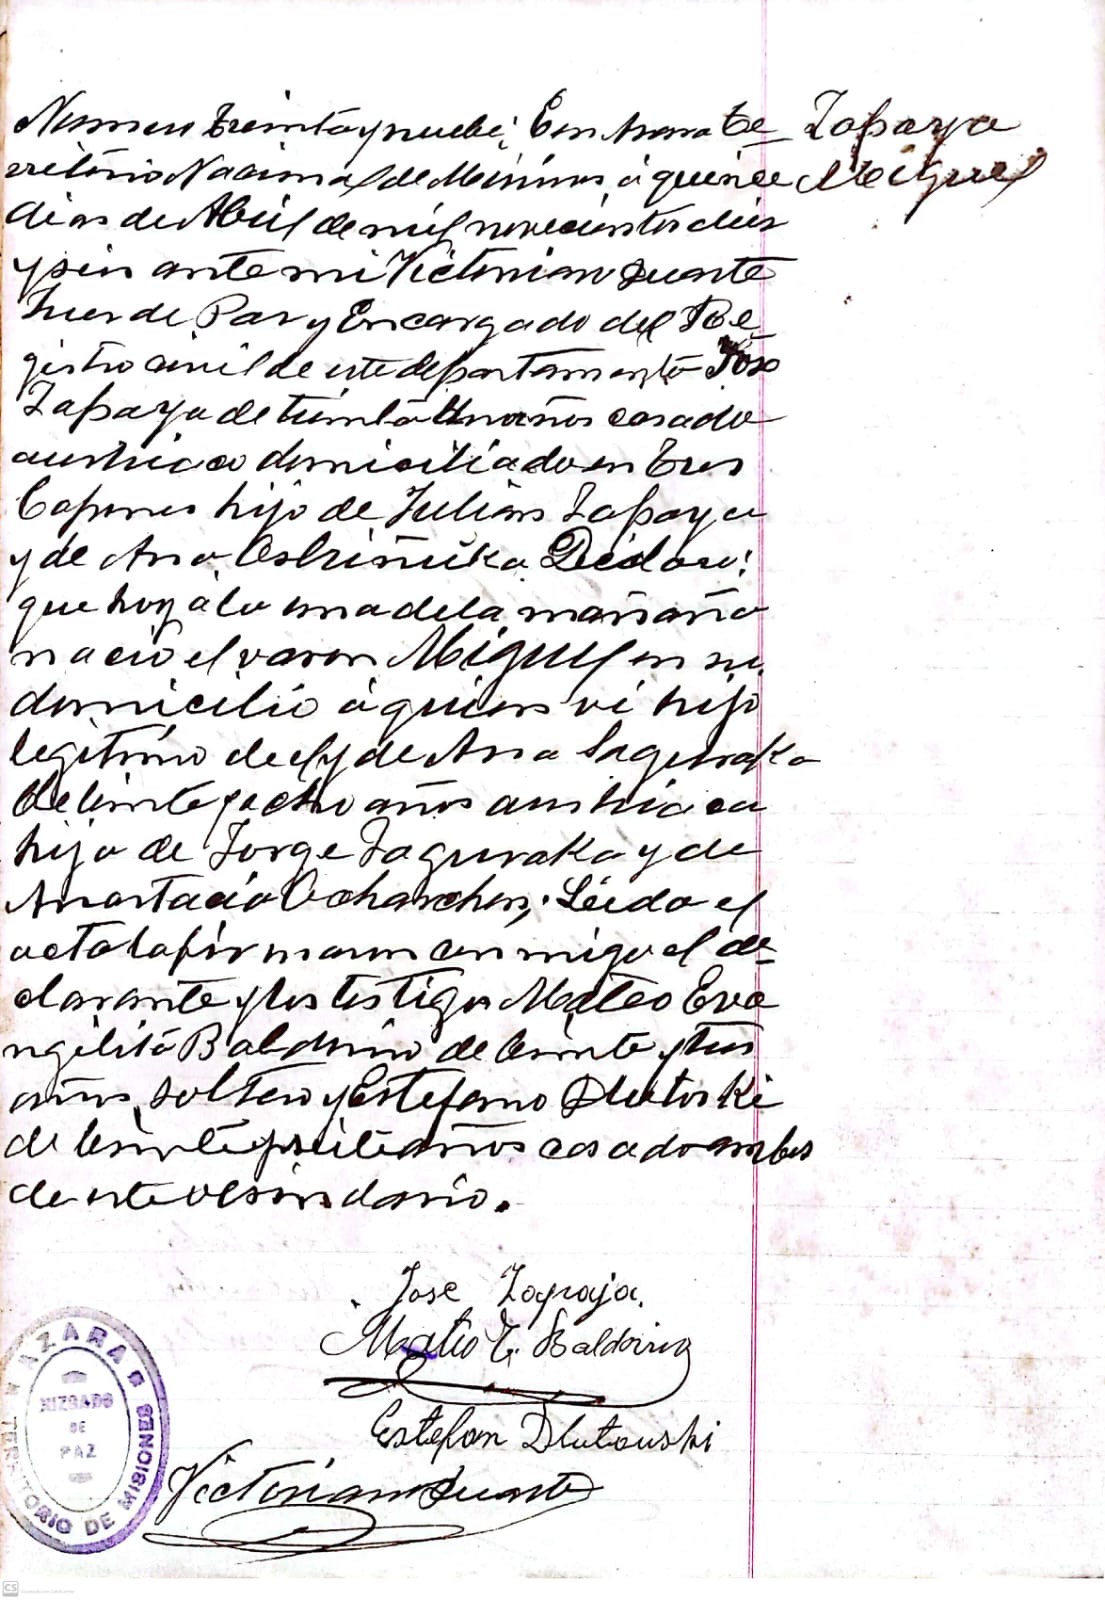 Numero treinta y nueve; En Azara Te
rritorio Nacional de Misiones a quince
dias de Abril de mil novecientos diez
y seis ante mi Victoriano Duarte
Juez de Paz y Encargado del Re
gistro civil de este departamento José
Zapaya de treinta años casado
austriaco domiciliado en Tres
Capones hijo de Julian Zapaya
y de Ana Declaró:
que hoy a la una de la mañana
nació el varon Miguel en su
domicilio a quien vi hijo
legitimo de el y de Ana Saguraka
de veinte y ocho años austriaca
hija de Jorge Saguraka y de
Anastacia Leida el
acta la firmaron conmigo el de
clarante y los testigos Mateo Eva
ngelista Baldovino de veinte y tres
años, soltero y Estefano Dlutoski
de veinte y siete años casado ambos
de este vecindario.
Zapaya
Miguel
Jose Zapaja.
Mateo E. Baldovino
Estefan Dlutouski
Victoriano Duarte
AZARA
JUZGADO
DE
PAZ
TERRITORIO DE MISIONES
CS